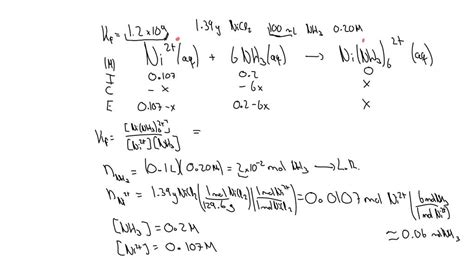 Kf = 1.2×10⁹ 1.39g NiCl₂ 100 mL NH₃ 0.20M
Ni²⁺(aq) + 6NH₃(aq) → Ni(NH₃)₆²⁺ (aq)
(M)
I 0.107 0.2 0
C -x -6x x
E 0.107-x 0.2-6x x
Kf = [Ni(NH₃)₆²⁺] / [Ni²⁺][NH₃] =
n NH₃ = (0.1L)(0.20M) = 2×10⁻² mol NH₃ → L.R.
n Ni²⁺ = 1.39g NiCl₂ (1 mol NiCl₂ / 129.6g) (1 mol Ni²⁺ / 1 mol NiCl₂) = 0.0107 mol Ni²⁺ (6 mol NH₃ / 1 mol Ni²⁺)
≈ 0.06 mol NH₃
[NH₃] = 0.2M
[Ni²⁺] = 0.107M